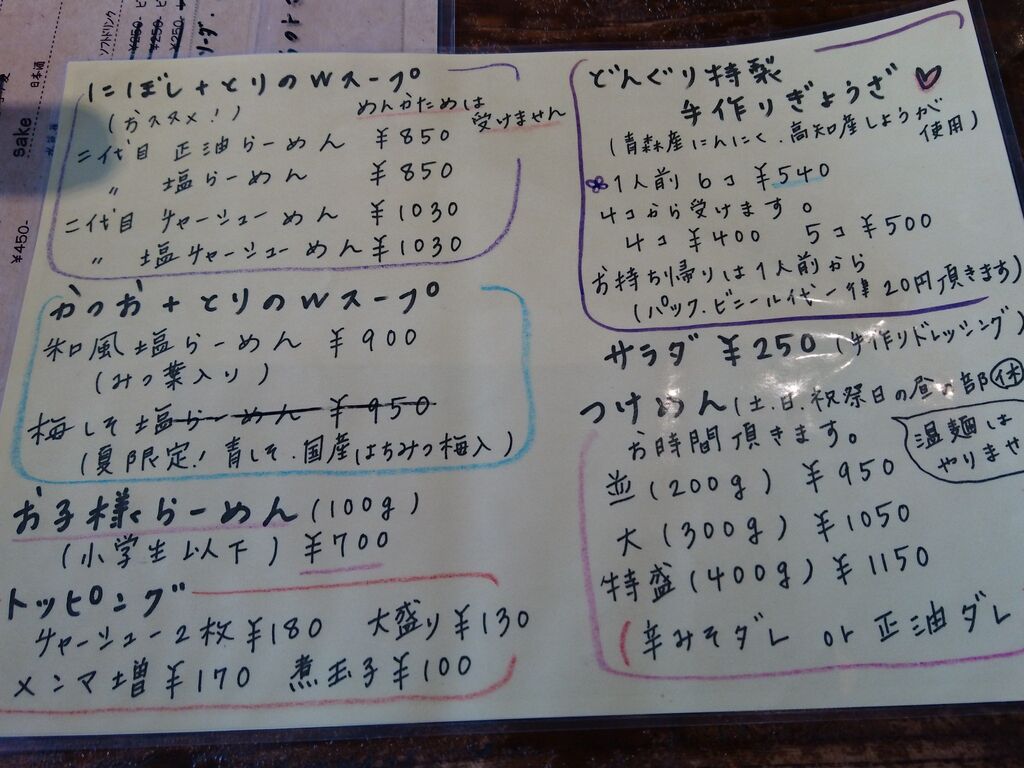 にぼし+とりのWスープ
(おススメ!)
めんかためは
受けません
二代目 正油らーめん ¥850
〃 塩らーめん ¥850
二代目 チャーシューめん ¥1030
〃 塩チャーシューめん ¥1030
かつお+とりのWスープ
和風塩らーめん ¥900
(みつ葉入り)
梅しそ塩らーめん ¥950
(夏限定!青しそ.国産はちみつ梅入)
お子様らーめん(100g)
(小学生以下) ¥700
トッピング
チャーシュー2枚¥180 大盛り¥130
メンマ増¥170 煮玉子¥100
どんぐり特製
手作りぎょうざ
(青森産にんにく.高知産しょうが
使用)
1人前 6コ ¥540
4コから受けます。
4コ ¥400 5コ ¥500
お持ち帰りは1人前から
(パック.ビニール代一律20円頂きます)
サラダ ¥250(手作りドレッシング)
つけめん(土.日.祝祭日の昼の部休
お時間頂きます。
温麺は
やりませ
並(200g) ¥950
大(300g) ¥1050
特盛(400g) ¥1150
(辛みそダレ or 正油ダレ
Sake
日本酒
¥450-
ソフトドリンク